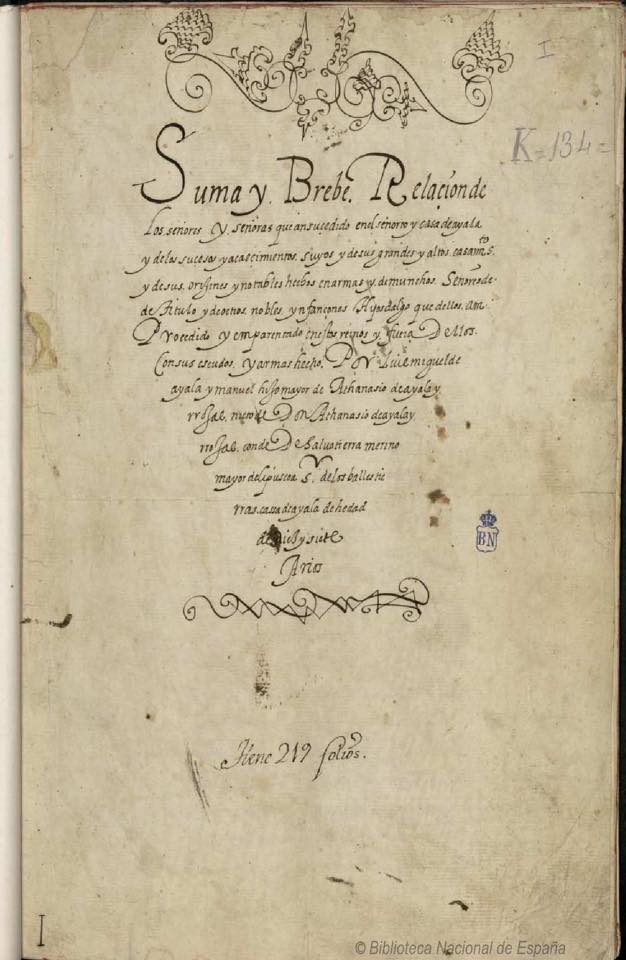 I
K=134=
Suma y Brebe. Relacion de
los señores y señoras que an suçedido en el señorio y casa de ayala
y de los sucesos y acaescimientos. suyos y de sus grandes y altos. casamtos.
y de sus. orijines y notables hechos en armas y de muchos. Señores de
de titulo y de otros nobles. ynfançones Hijosdalgo que dellos. an
Procedido y emparentado en estos reinos y fuera Dellos.
Con sus escudos. y armas hecho. Por Luis miguel de
ayala y manuel hijo mayor de Athanasio de ayala y
rrojas. nieto de Don Athanasio de ayala y
rrojas. conde De Salvatierra merino
mayor de Lipuscoa Sr. de los balles tie
rras. casa de ayala de hedad
de diez y siete
Años
BN
tiene 219 folios.
I
© Biblioteca Nacional de España